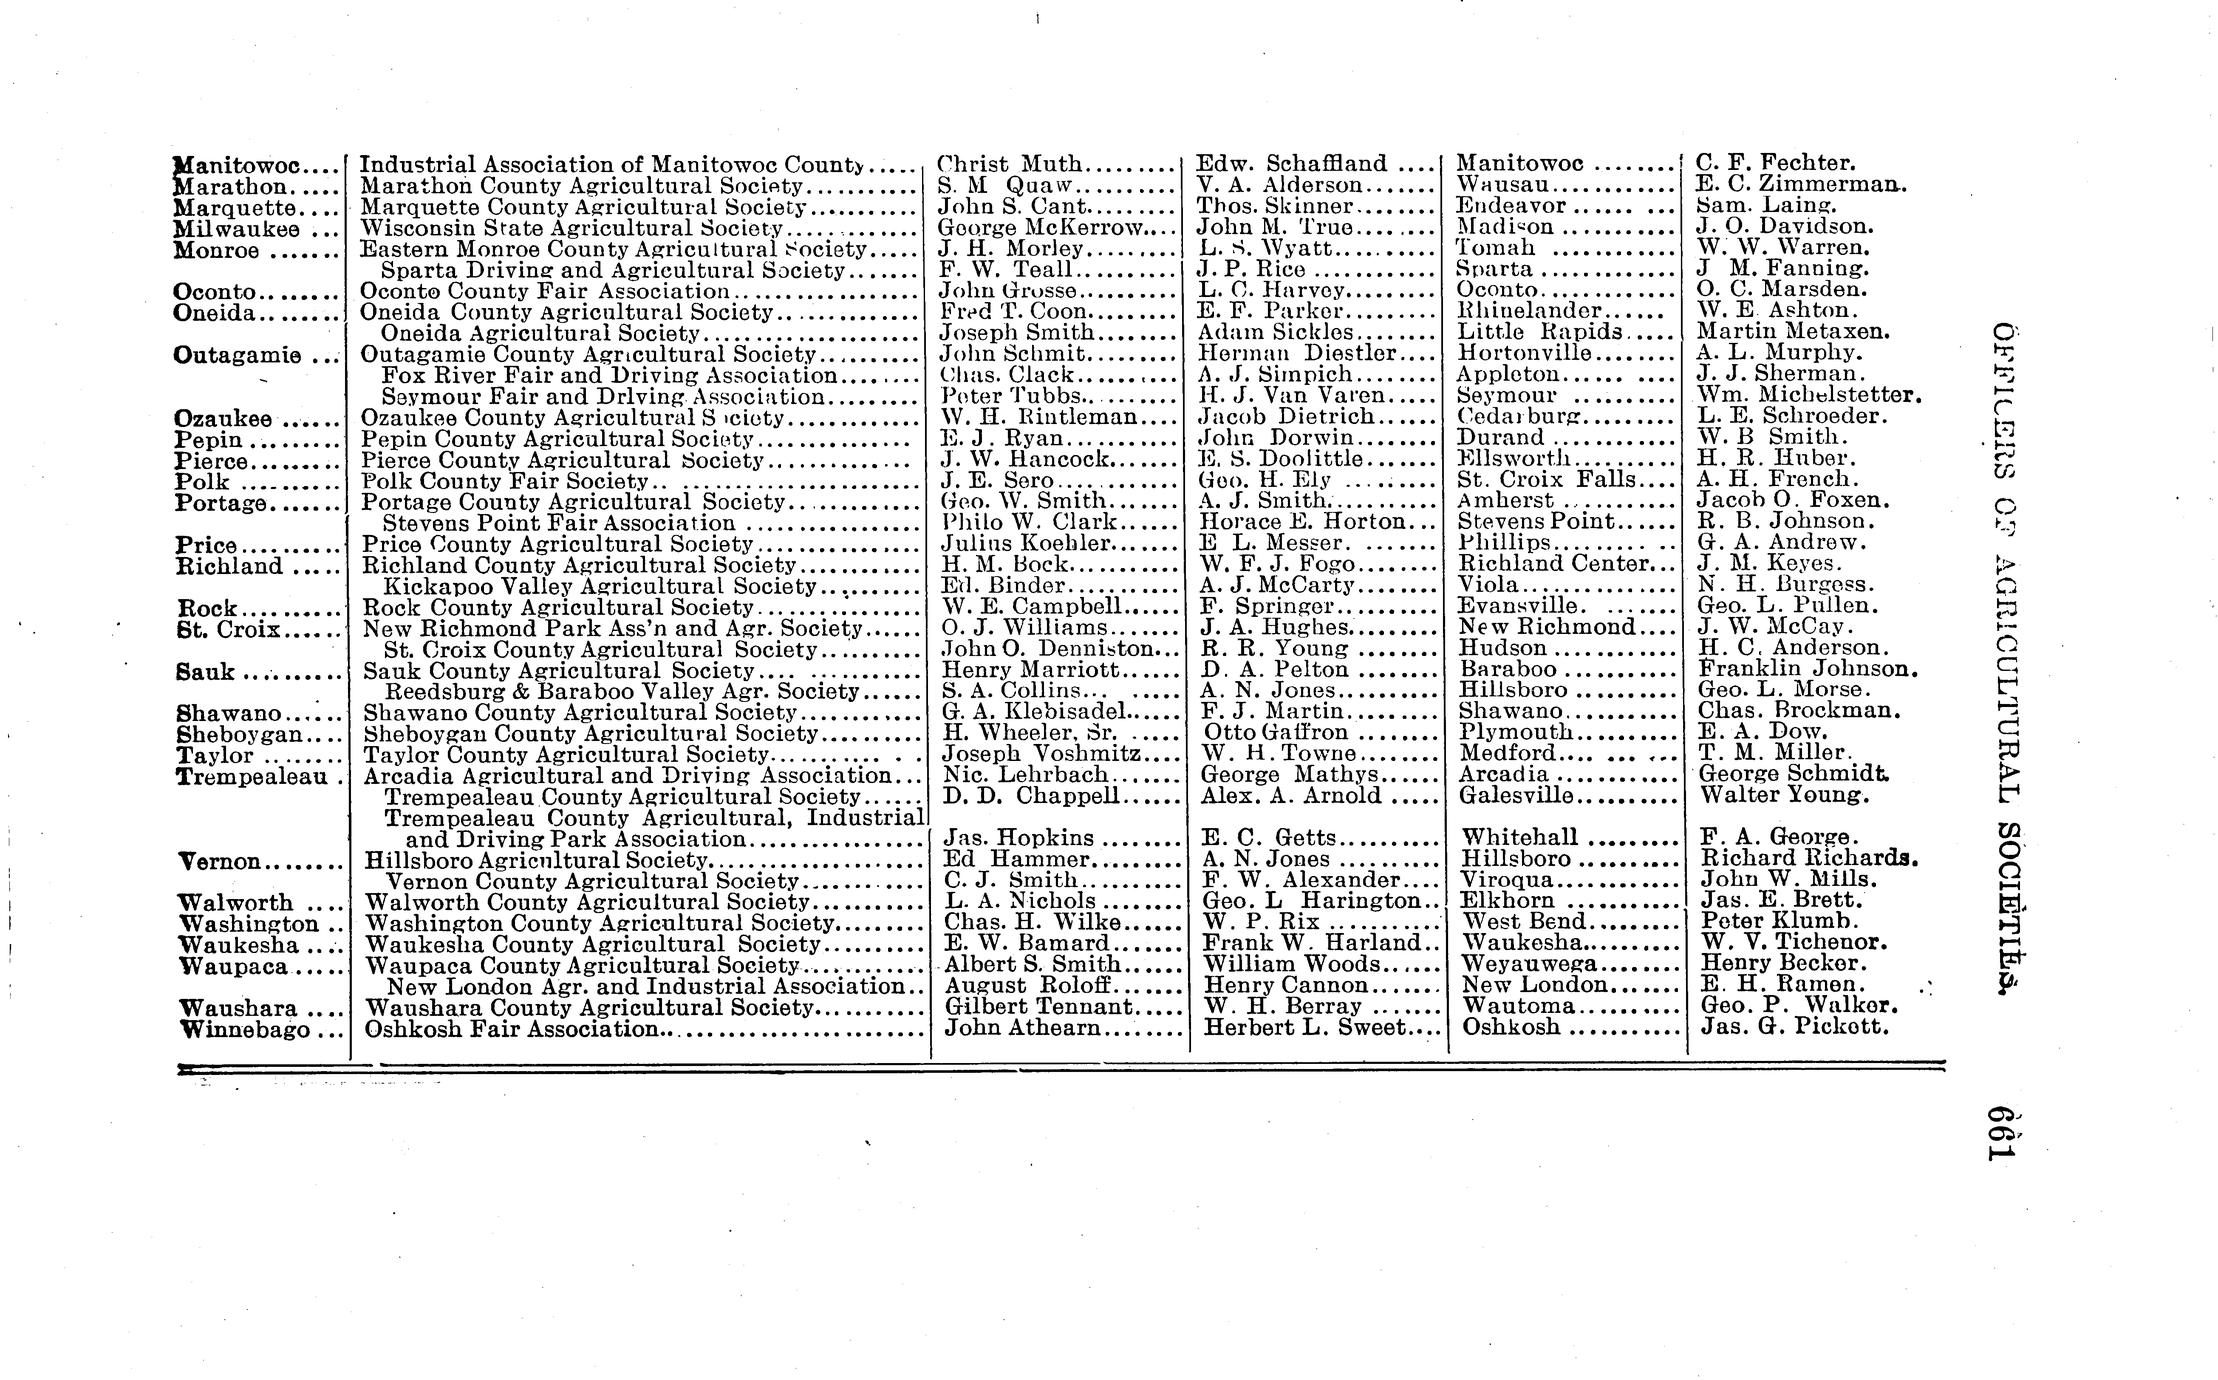 Manitowoc.... Industrial Association of Manitowoc County..... Christ Muth......... Edw. Schaffland .... Manitowoc ........ C. F. Fechter.
Marathon..... Marathon County Agricultural Society........... S. M Quaw.......... V. A. Alderson....... Wausau............ E. C. Zimmerman.
Marquette.... Marquette County Agricultural Society........... John S. Cant......... Thos. Skinner........ Endeavor ...... ... Sam. Laing.
Milwaukee ... Wisconsin State Agricultural Society............. George McKerrow.... John M. True........ Madison ........... J. O. Davidson.
Monroe ....... Eastern Monroe County Agricultural Society..... J. H. Morley......... L. S. Wyatt.......... Tomah ............ W. W. Warren.
Sparta Driving and Agricultural Society....... F. W. Teall.......... J. P. Rice ............ Sparta ............. J M. Fanning.
Oconto........ Oconto County Fair Association.................. John Grosse.......... L. C. Harvey......... Oconto............. O. C. Marsden.
Oneida........ Oneida County Agricultural Society.............. Fred T. Coon......... E. F. Parker......... Rhinelander...... W. E Ashton.
Oneida Agricultural Society..................... Joseph Smith........ Adam Sickles........ Little Rapids..... Martin Metaxen.
Outagamie ... Outagamie County Agricultural Society.......... John Schmit......... Herman Diestler.... Hortonville........ A. L. Murphy.
Fox River Fair and Driving Association........ Chas. Clack.......... A. J. Simpich........ Appleton...... .... J. J. Sherman.
Seymour Fair and Driving Association......... Peter Tubbs......... H. J. Van Varen..... Seymour .......... Wm. Michelstetter.
Ozaukee ...... Ozaukee County Agricultural S ciety............. W. H. Rintleman.... Jacob Dietrich...... Cedarburg......... L. E. Schroeder.
Pepin ......... Pepin County Agricultural Society............... E. J. Ryan........... John Dorwin........ Durand ............ W. B Smith.
Pierce......... Pierce County Agricultural Society.............. J. W. Hancock....... E. S. Doolittle....... Ellsworth.......... H. R. Huber.
Polk .......... Polk County Fair Society.. ........................ J. E. Sero............ Geo. H. Ely ......... St. Croix Falls.... A. H. French.
Portage....... Portage County Agricultural Society............. Geo. W. Smith....... A. J. Smith........... Amherst ........... Jacob O. Foxen.
Stevens Point Fair Association ................. Philo W. Clark...... Horace E. Horton... Stevens Point...... R. B. Johnson.
Price.......... Price County Agricultural Society................ Julius Koehler....... E L. Messer. ....... Phillips......... .. G. A. Andrew.
Richland ..... Richland County Agricultural Society............ H. M. Bock........... W. F. J. Fogo........ Richland Center... J. M. Keyes.
Kickapoo Valley Agricultural Society.......... Ed. Binder........... A. J. McCarty........ Viola............... N. H. Burgess.
Rock.......... Rock County Agricultural Society................ W. E. Campbell...... F. Springer.......... Evansville. ....... Geo. L. Pullen.
St. Croix...... New Richmond Park Ass'n and Agr. Society...... O. J. Williams....... J. A. Hughes......... New Richmond.... J. W. McCay.
St. Croix County Agricultural Society.......... John O. Denniston... R. R. Young ........ Hudson ............ H. C. Anderson.
Sauk .......... Sauk County Agricultural Society.... ........... Henry Marriott...... D. A. Pelton ........ Baraboo ........... Franklin Johnson.
Reedsburg & Baraboo Valley Agr. Society...... S. A. Collins... ..... A. N. Jones.......... Hillsboro .......... Geo. L. Morse.
Shawano...... Shawano County Agricultural Society............ G. A. Klebisadel...... F. J. Martin......... Shawano........... Chas. Brockman.
Sheboygan.... Sheboygan County Agricultural Society.......... H. Wheeler, Sr. ..... Otto Gaffron ........ Plymouth.......... E. A. Dow.
Taylor ........ Taylor County Agricultural Society........... . . Joseph Voshmitz.... W. H. Towne........ Medford.... ... ... T. M. Miller.
Trempealeau . Arcadia Agricultural and Driving Association... Nic. Lehrbach....... George Mathys...... Arcadia ............ George Schmidt.
Trempealeau County Agricultural Society...... D. D. Chappell...... Alex. A. Arnold ..... Galesville.......... Walter Young.
Trempealeau County Agricultural, Industrial
and Driving Park Association................. Jas. Hopkins ........ E. C. Getts.......... Whitehall ......... F. A. George.
Vernon........ Hillsboro Agricultural Society..................... Ed Hammer......... A. N. Jones .......... Hillsboro .......... Richard Richards.
Vernon County Agricultural Society............ C. J. Smith.......... F. W. Alexander.... Viroqua............ John W. Mills.
Walworth .... Walworth County Agricultural Society........... L. A. Nichols ........ Geo. L Harington.. Elkhorn ........... Jas. E. Brett.
Washington .. Washington County Agricultural Society......... Chas. H. Wilke...... W. P. Rix ........... West Bend......... Peter Klumb.
Waukesha .... Waukesha County Agricultural Society.......... E. W. Bamard....... Frank W. Harland.. Waukesha.......... W. V. Tichenor.
Waupaca..... Waupaca County Agricultural Society............ Albert S. Smith...... William Woods...... Weyauwega........ Henry Becker.
New London Agr. and Industrial Association.. August Roloff....... Henry Cannon....... New London....... E. H. Ramen.
Waushara .... Waushara County Agricultural Society........... Gilbert Tennant..... W. H. Berray ....... Wautoma.......... Geo. P. Walker.
Winnebago ... Oshkosh Fair Association.......................... John Athearn........ Herbert L. Sweet.... Oshkosh ........... Jas. G. Pickett.
OFFICERS OF AGRICULTURAL SOCIETIES.
661